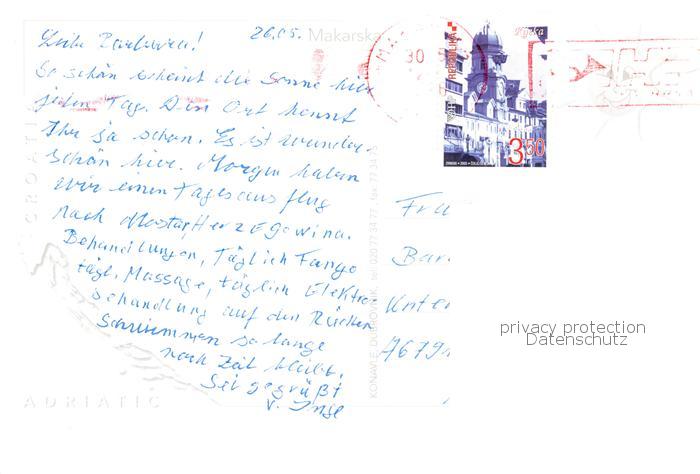 Liebe Barbara!
26.05.
Makarska
So schön scheint die Sonne hier
jeden Tag. Den Ort kennt
Ihr ja schon. Es ist wunder-
schön hier. Morgen haben
wir einen Tagesausflug
nach Mostar, Herzegowina.
Behandlungen, Täglich Fango
tägl. Massage, täglich Elektro
behandlung auf den Rücken
Schwimmen so lange
noch Zeit bleibt.
Sei gegrüßt
v. Inge
Rijeka
REPUBLIKA
3.50
30
Frau
Bar
Unter
7679
CROATIA
ADRIATIC
KONAVLE, DUBROVNIK, tel 020 77 34 77, fax 77 34
privacy protection
Datenschutz